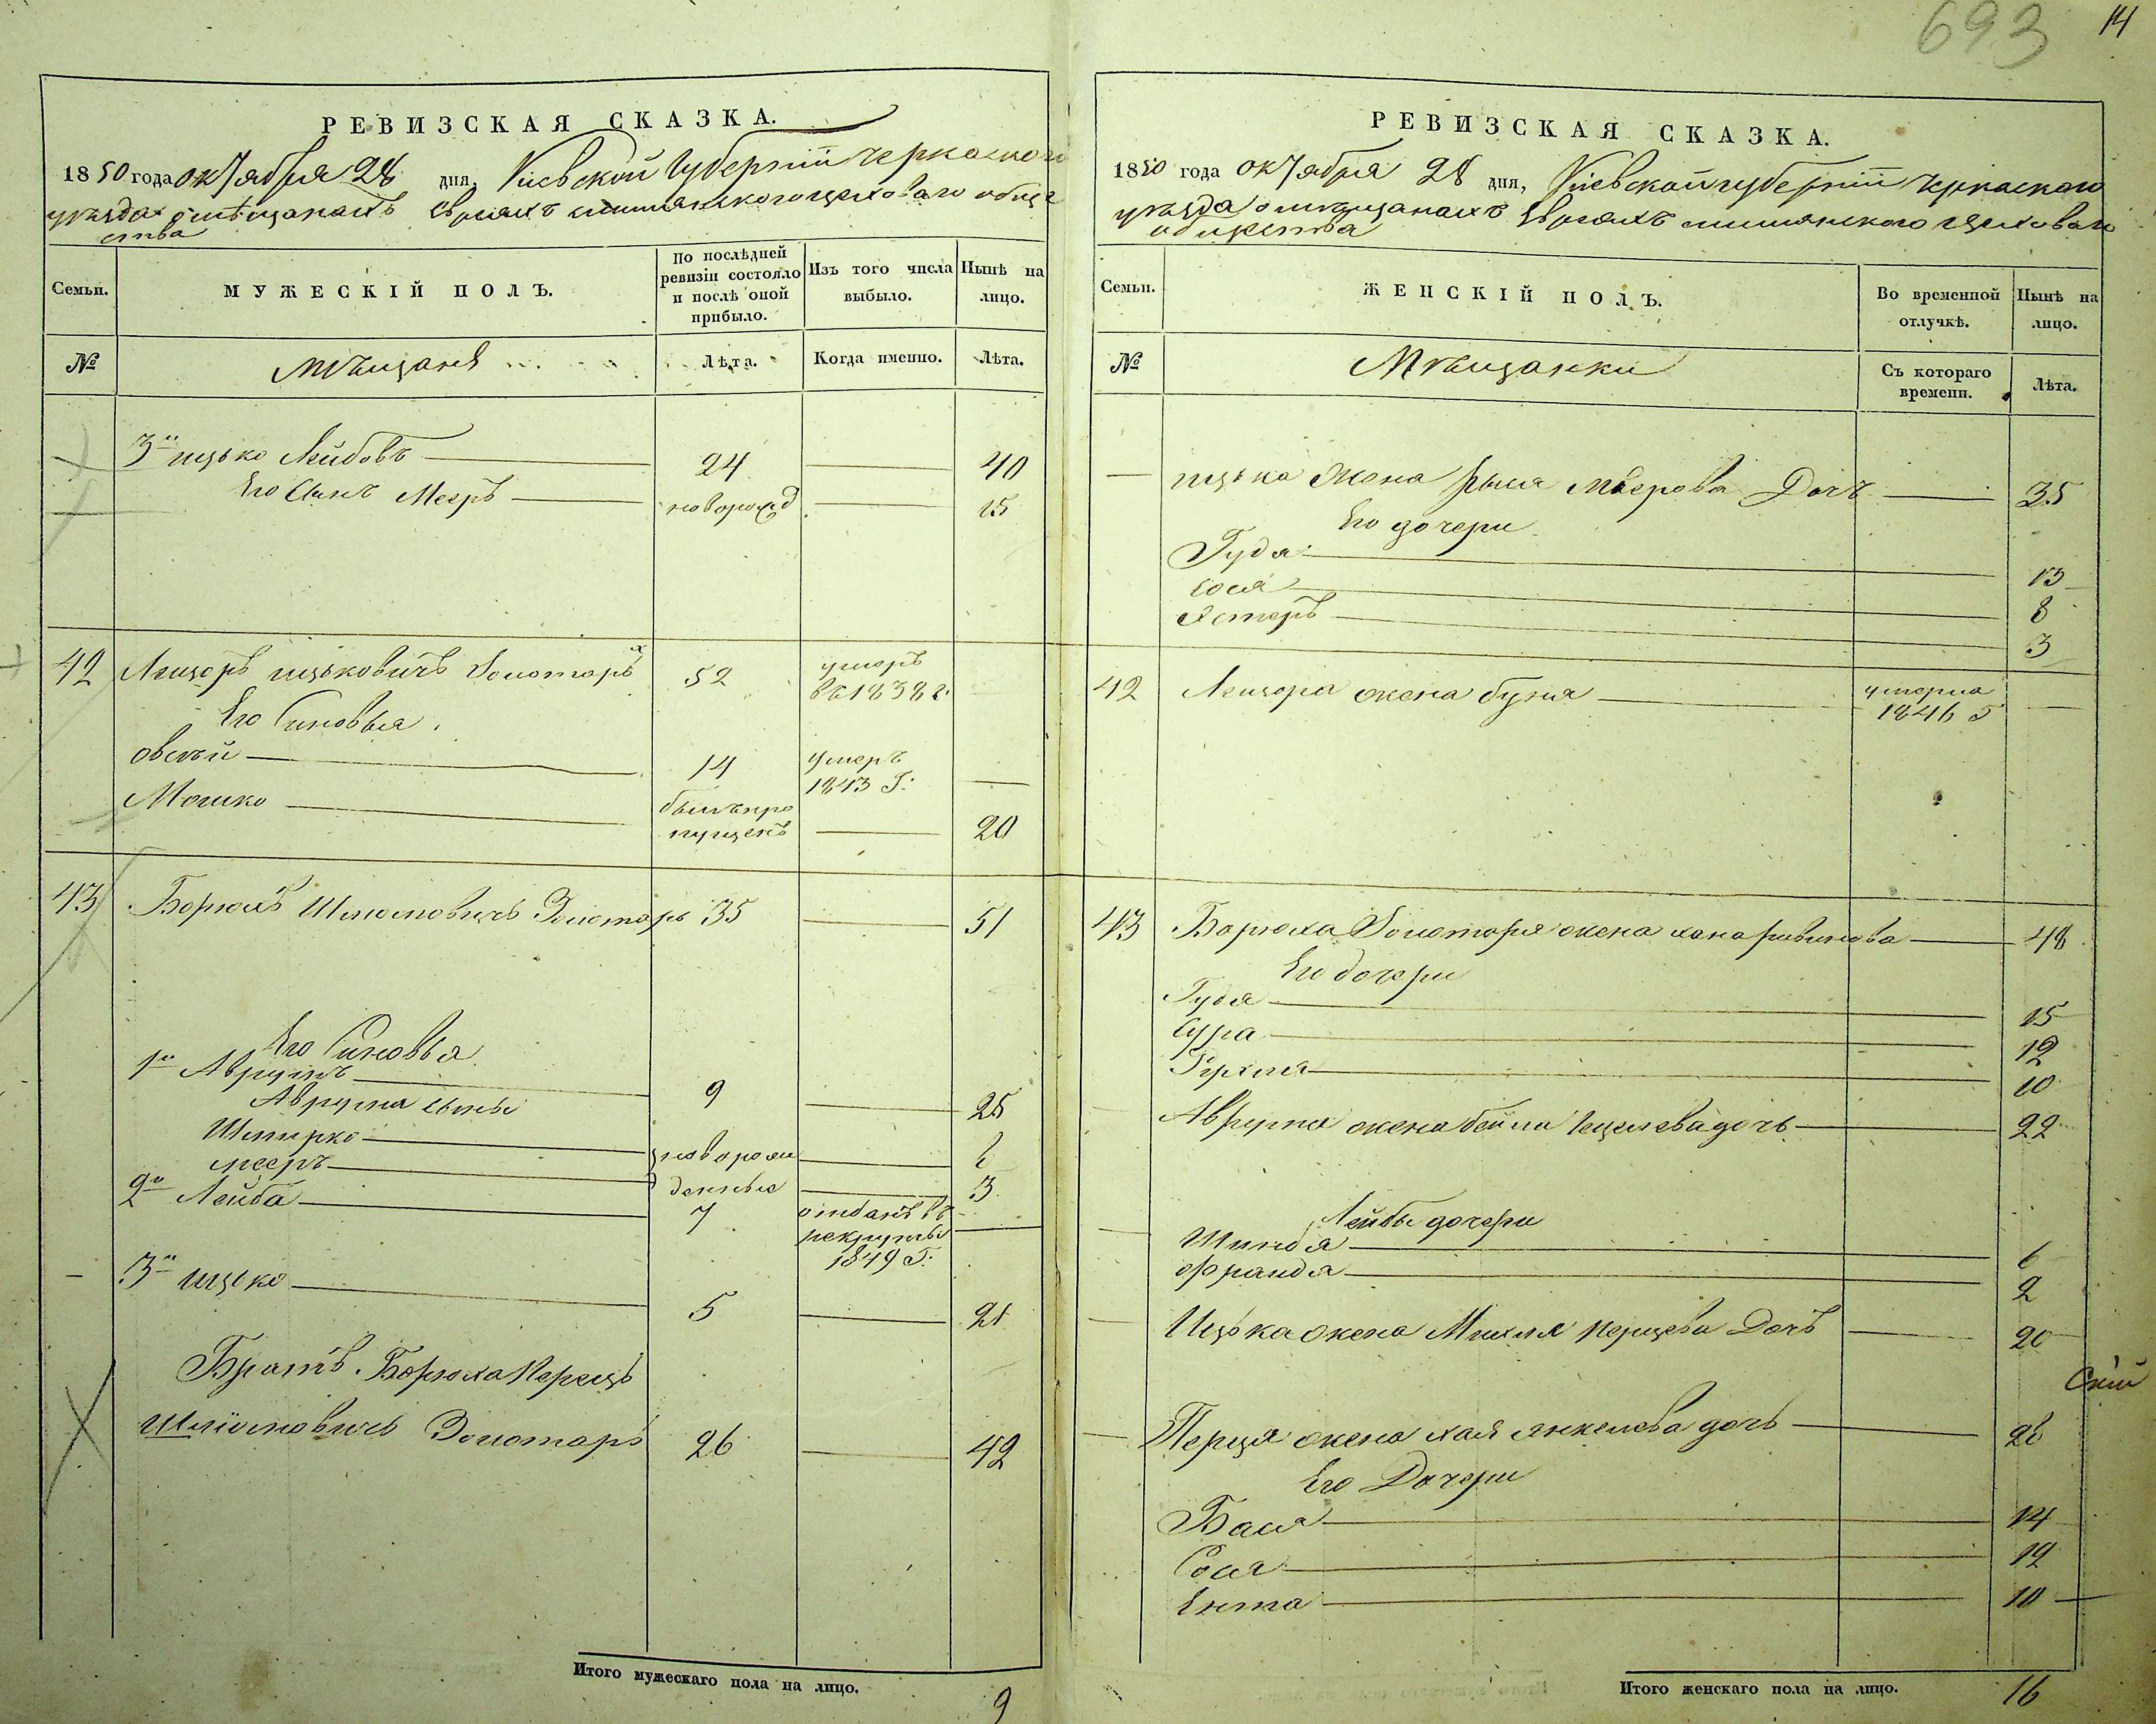 693
14
РЕВИЗСКАЯ СКАЗКА.
1850 года октября 28 дня, Кіевской губерніи черкаского
уезда о мѣщанахъ евреяхъ цеховаго обще
ства
Семьи.
МУЖЕСКІЙ ПОЛЪ.
По послѣдней
ревизіи состояло
и послѣ оной
прибыло.
Изъ того числа
выбыло.
Нынѣ на
лицо.
№
мѣщане
Лѣта.
Когда именно.
Лѣта.
3й ицько Лейбовъ 24 40
Его Сынъ Мееръ новорожд 15
42 Лейзоръ ицьковичъ Золотарь 52 умеръ
въ 1838 г.
Его Синовья
овсѣй 14 умеръ
1843 Г.
Мошко былъ про
пущенъ 20
43 Борюхъ Шліомовичъ Золотарь 35 51
Его Синовья
1й Аврумъ 9 25
Аврума сыны
Шмирко новорож 6
мееръ денные 3
2й Лейба 7 отданъ въ
рекруты
1849 Г.
3й ицько 5 21
Братъ Борюха Перецъ
Шліомовичъ Золотарь 26 42
Итого мужескаго пола на лицо.
9
РЕВИЗСКАЯ СКАЗКА.
1850 года октября 28 дня, Кіевской губерніи черкаского
уезда о мѣщанахъ евреяхъ цеховаго
общества
Семьи.
ЖЕНСКІЙ ПОЛЪ.
Во временной
отлучкѣ.
Нынѣ на
лицо.
№
Мѣщанки
Съ котораго
времени.
Лѣта.
ицька жена Рыся Меерова Дочь 35
Его дочери
Гудя 13
сося 8
Естеръ 3
42 Лейзора жена буня умерла
1846 Г
43 Борюха Золотаря жена хана рывинова 48
Его дочери
Гудя 15
Сура 12
10
Аврума жена бейла дочь 22
Лейбы дочери
Шинда 6
Фрейда 2
Ицька жена Михля перцева Дочь 20
Скій
Перця жена хая янкелева дочь 28
Его Дочери
Бася 14
Сося 12
Ента 10
Итого женскаго пола на лицо.
16